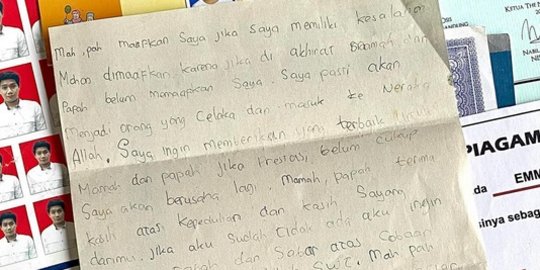 Mah, pah maafkan saya jika saya memiliki kesalahan
Mohon dimaafkan karena jika di akhirat
Papah belum memaafkan saya. Saya pasti akan
Menjadi orang yang celaka dan masuk ke Neraka
Allah, Saya ingin memberikan yang terbaik untuk
Mamah dan papah jika Prestasi belum cukup
Saya akan berusaha lagi Mamah, papah terima
kasih atas kepedulian dan kasih Sayang
darimu. Jika aku Sudah tidak ada aku ingin
dan Sabar atas Cobaan
Mah pah
KETUA THE N
NABIL
NI
PIAGAM
da EMM
sinya sebag